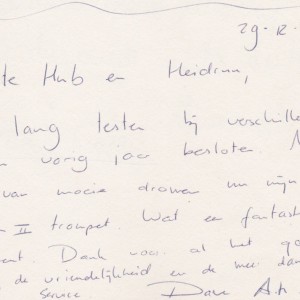 29-12-
te Hub en Heidrun,
lang testen bij verschille
n vorig jaar besloten. N
van mooie dromen nu mijn
n II trompet. Wat een fantast
ent. Dank voor al het go
de vriendelijkheid en de meer dan
service.